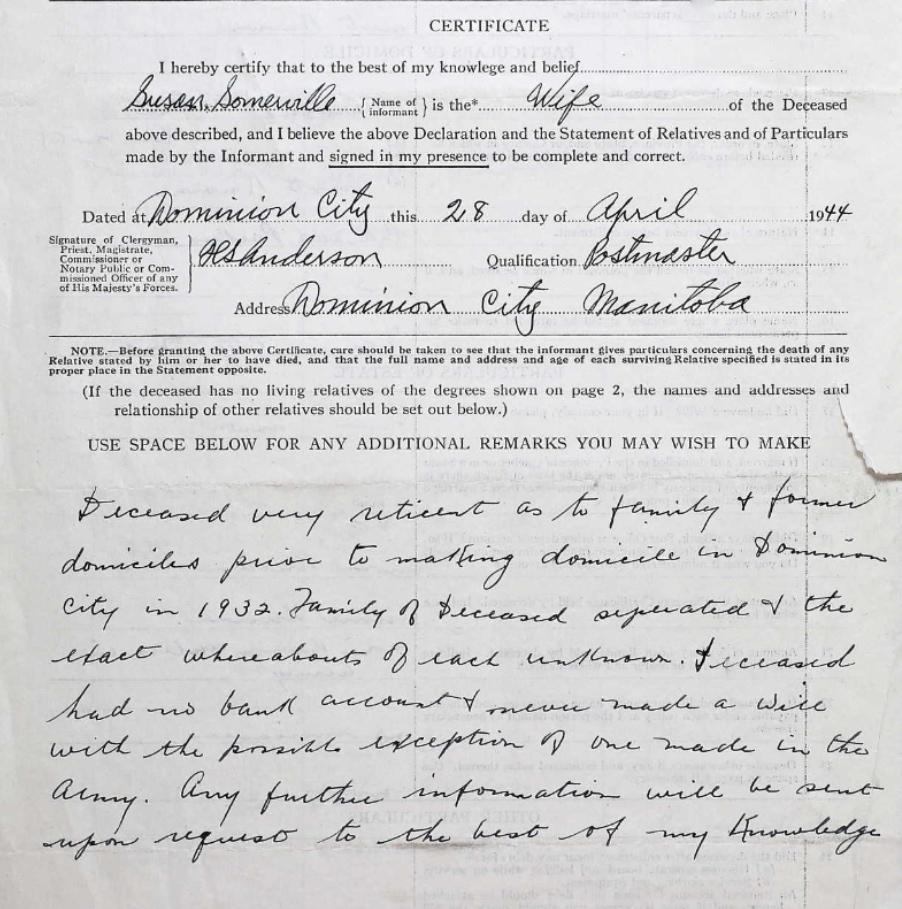 CERTIFICATE
I hereby certify that to the best of my knowlege and belief
Susan Somerville { Name of informant } is the* Wife of the Deceased
above described, and I believe the above Declaration and the Statement of Relatives and of Particulars
made by the Informant and signed in my presence to be complete and correct.
Dated at Dominion City this 28 day of April 1944
Signature of Clergyman,
Priest, Magistrate,
Commissioner or
Notary Public or Com-
missioned Officer of any
of His Majesty's Forces.
HSAnderson Qualification Postmaster
Address Dominion City Manitoba
NOTE.—Before granting the above Certificate, care should be taken to see that the informant gives particulars concerning the death of any
Relative stated by him or her to have died, and that the full name and address and age of each surviving Relative specified is stated in its
proper place in the Statement opposite.
(If the deceased has no living relatives of the degrees shown on page 2, the names and addresses and
relationship of other relatives should be set out below.)
USE SPACE BELOW FOR ANY ADDITIONAL REMARKS YOU MAY WISH TO MAKE
Deceased very reticent as to family & former
domiciles prior to making domicile in Dominion
City in 1932. Family of Deceased seperated & the
exact whereabouts of each unknown. Deceased
had no bank account & never made a will
with the possible exception of one made in the
Army. Any further information will be sent
upon request to the best of my Knowledge